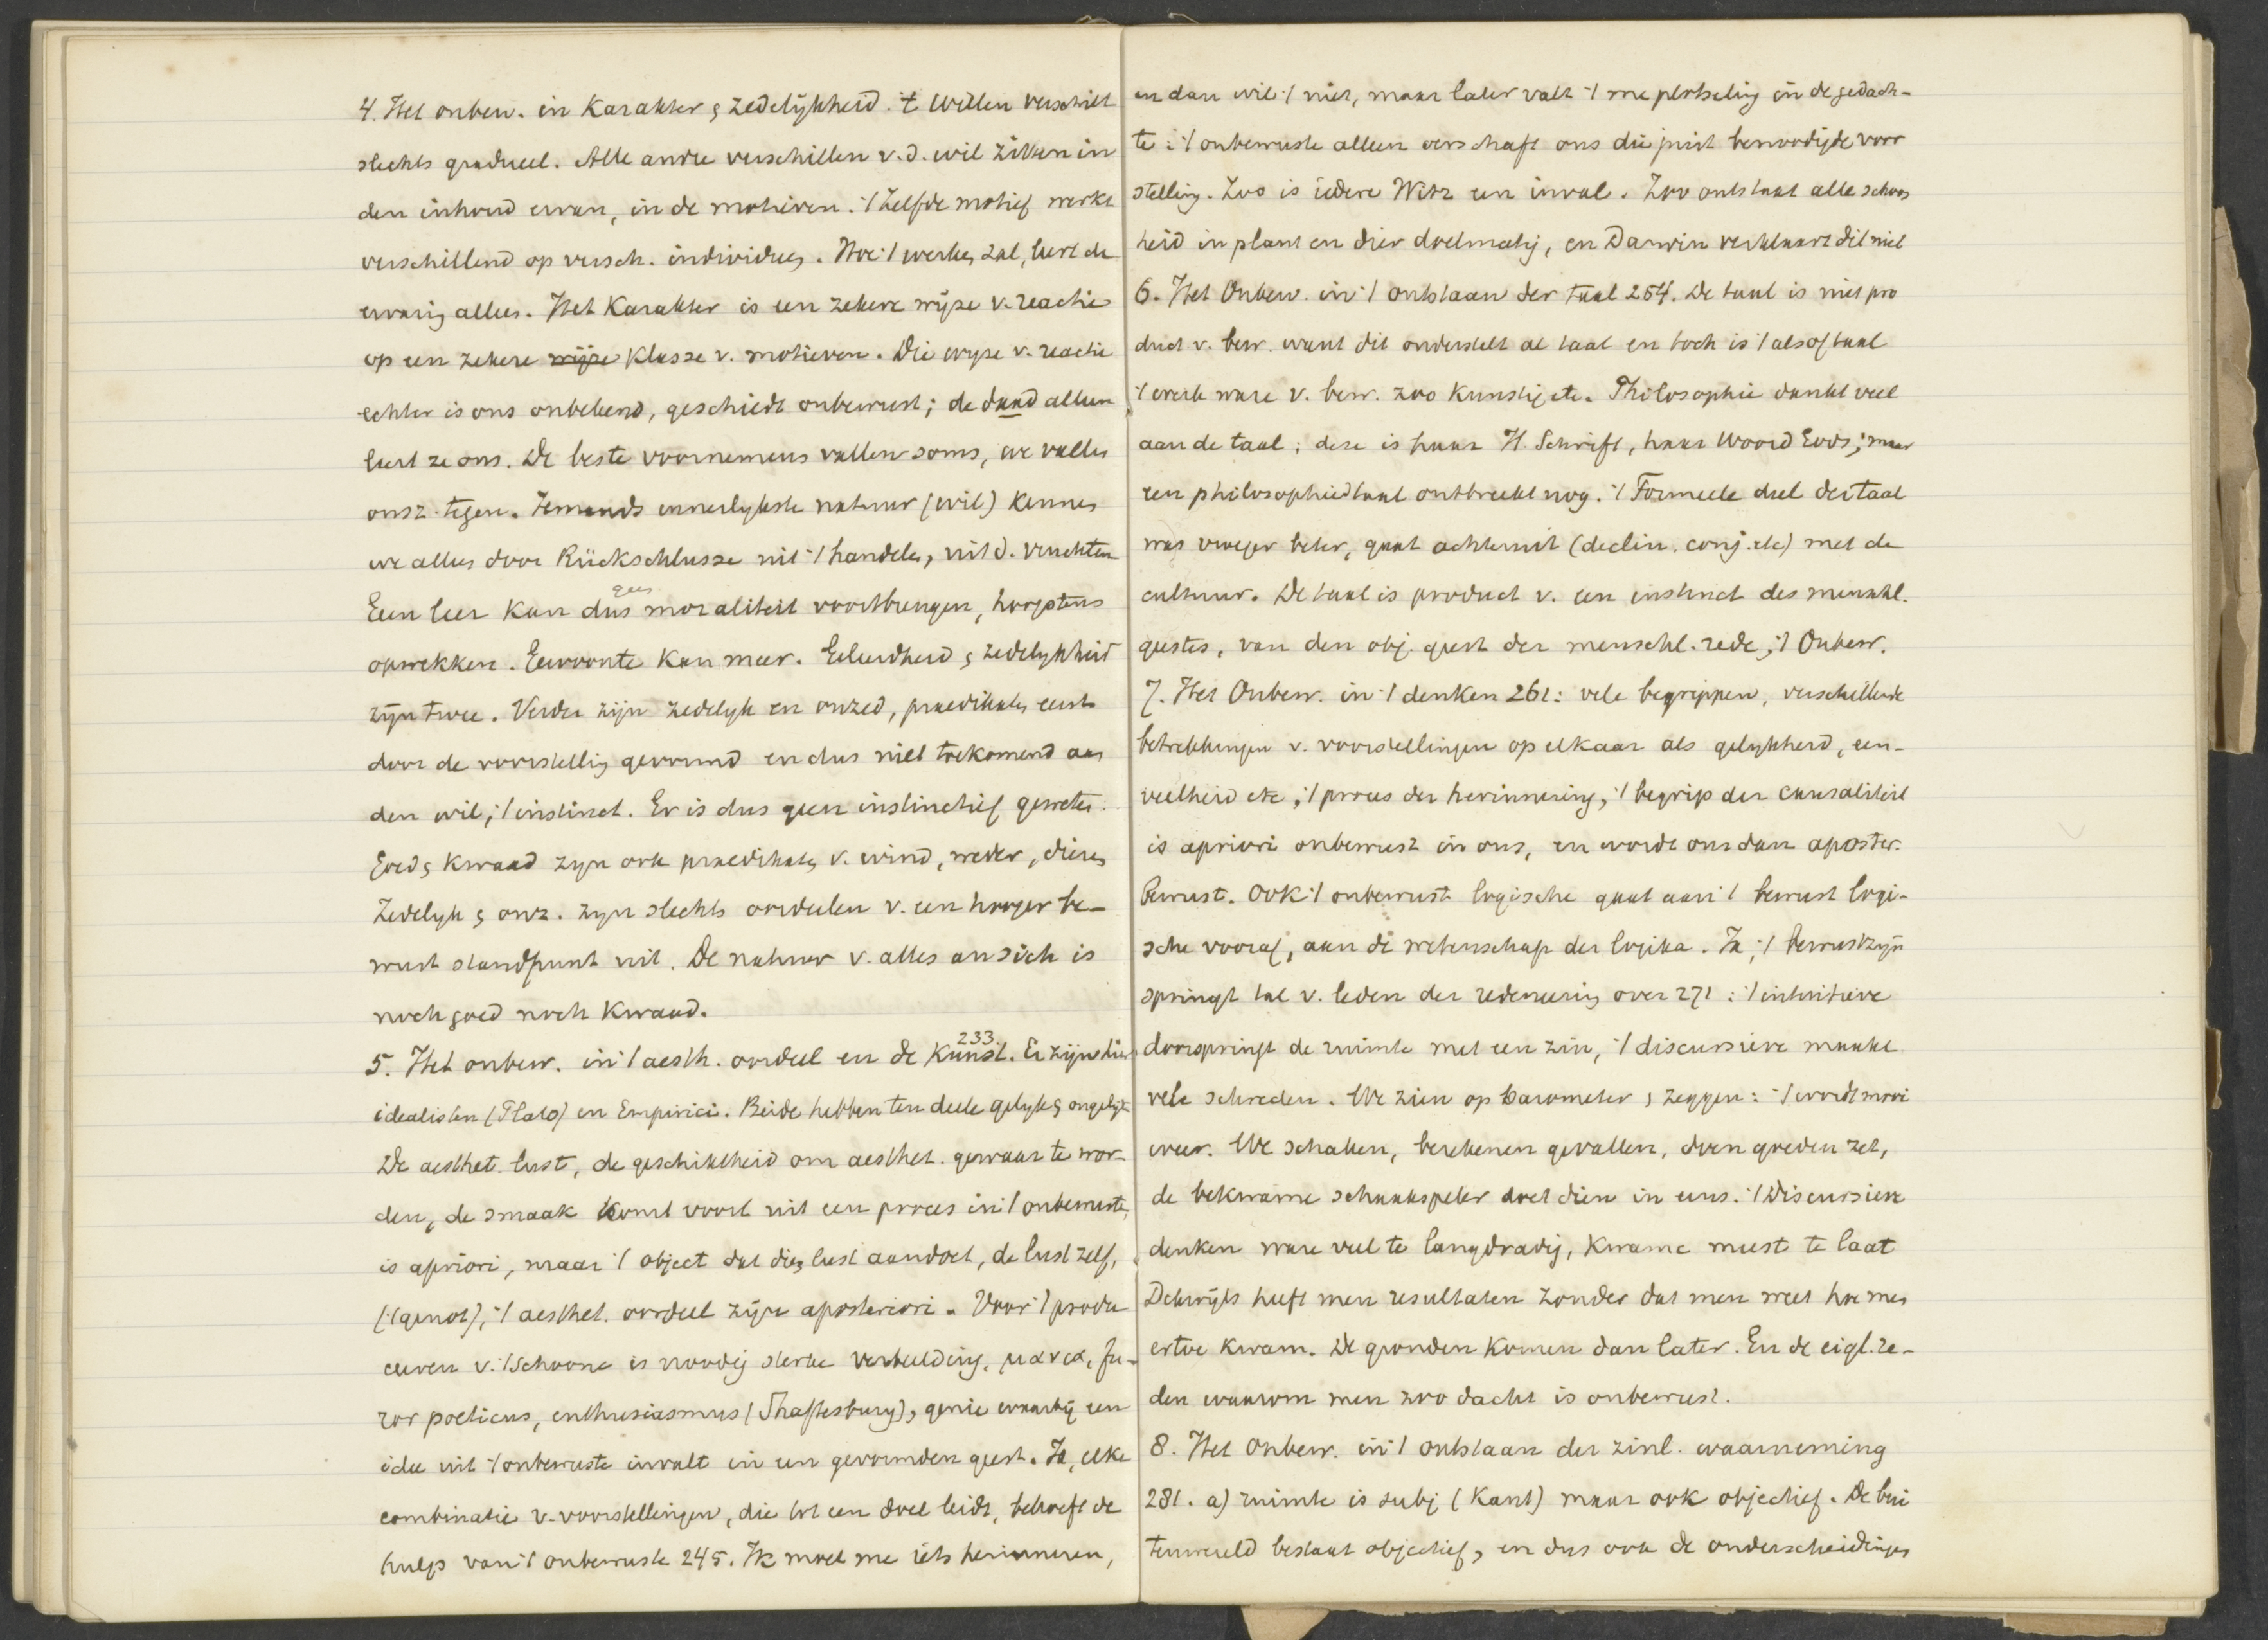 4. Het onbew. in Karakter & zedelijkheid. 't Willen verschilt
slechts gradueel. Alle andre verschillen v. d. wil zitten in
den inhoud ervan, in de motieven. 't Zelfde motief werkt
verschillend op versch. individuen. Hoe 't werken zal, leert de
ervaring alleen. Het Karakter is een zekere wijze v. reactie
op een zekere wijze Klasse v. motieven. Die wyze v. reactie
echter is ons onbekend, geschiedt onbewust; de daad alleen
leert ze ons. De beste voornemens vallen soms, we vallen
onsz. tegen. Iemands innerlykste natuur (wil) kennen
we alleen door Rückschlusse uit 't handelen, uit d. vruchten
Een leer kan dus geen moraliteit voortbrengen, hoogstens
opwekken. Gewoonte kan meer. Geleerdheid & zedelykheid
zijn twee. Verder zijn zedelyk en onzed, praedikaten eerst
door de voorstelling gevormd en dus niet toekomend aan
den wil, 't instinct. Er is dus geen instinctief geweten.
Goed & Kwaad zyn ook praedikaten v. wind, weder, dieren
Zedelyk & onz. zyn slechts oordeelen v. een hooger be-
wust standpunt uit. De natuur v. alles an sich is
noch goed noch Kwaad.
5. Het onbew. in 't aesth. oordeel en de Kunst. 233. Er zijn hier
idealisten (Plato) en Empirici. Beide hebben ten deele gelyk & ongelyk
De aesthet. lust, de geschiktheid om aesthet. gewaar te wor-
den, de smaak komt voort uit een proces in 't onbewuste,
is apriori, maar 't object dat die lust aandoet, de lust zelf,
('t genot), 't aesthet. oordeel zijn aposteriori. Voor 't produ
ceeren v. 't Schoone is noodig sterke verbeelding, μανια, fu-
ror poeticus, enthusiasmus (Shaftesbury), genie waarbij een
idee uit 't onbewuste invalt in een gevormden geest. Ja, elke
combinatie v. voorstellingen, die tot een doel leidt, behoeft de
hulp van 't onbewuste 245. Ik moet me iets herinneren,
en dan wil 't niet, maar later valt 't me plotseling in de gedach-
te: 't onbewuste alleen verschaft ons die juist benoodigde voor
stelling. Zoo is iedere Witz een inval. Zoo ontstaat alle schoon
heid in plant en dier doelmatig, en Darwin verklaart dit niet
6. Het Onbew. in 't ontstaan der taal 254. De taal is niet pro
duct v. bew. want dit onderstelt al taal en toch is 't alsof taal
't werk ware v. bew. zoo kunstig etc. Philosophie dankt veel
aan de taal; deze is haar H. Schrift, haar Woord Gods; maar
een philosophie d taal ontbreekt nog. 't Formeele deel der taal
was vroeger beter, gaat achteruit (declin. conj. etc) met de
cultuur. De taal is product v. een instinct des menschl.
geestes, van den obj. geest der menschl. rede, 't Onbew.
7. Het Onbew. in 't denken 261: vele begrippen, verschillende
betrekkingen v. voorstellingen op elkaar als gelykheid, een-
veelheid etc, 't proces der herinnering, 't begrip der causaliteit
is apriori onbewust in ons, en wordt ons dan aposter.
bewust. Ook 't onbewust logische gaat aan 't bewust logi-
sche vooraf, aan de wetenschap der logika. Ja, 't bewustzyn
springt tal v. leden der redeneering over 271: 't intuitieve
doorspringt de ruimte met een zin, 't discursieve maakt
vele schreden. We zien op barometer & zeggen: 't wordt mooi
weer. We schaken, berekenen gevallen, doen goeden zet,
de bekwame schaakspeler doet dien in eens. 't Discursieve
denken ware veel te langdradig, kwame meest te laat
Dikwijls heeft men resultaten zonder dat men weet hoe men
ertoe kwam. De gronden komen dan later. En de eigl. re-
den waarom men zoo dacht is onbewust.
8. Het Onbew. in 't ontstaan der zinl. waarneming
281. a) ruimte is subj (Kant) maar ook objectief. De bui
tenwereld bestaat objectief, en dus ook de onderscheidingen